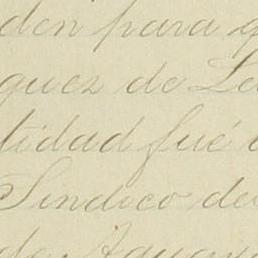 den para q
quez de Le
tidad fué
Sindico de
de Aguay